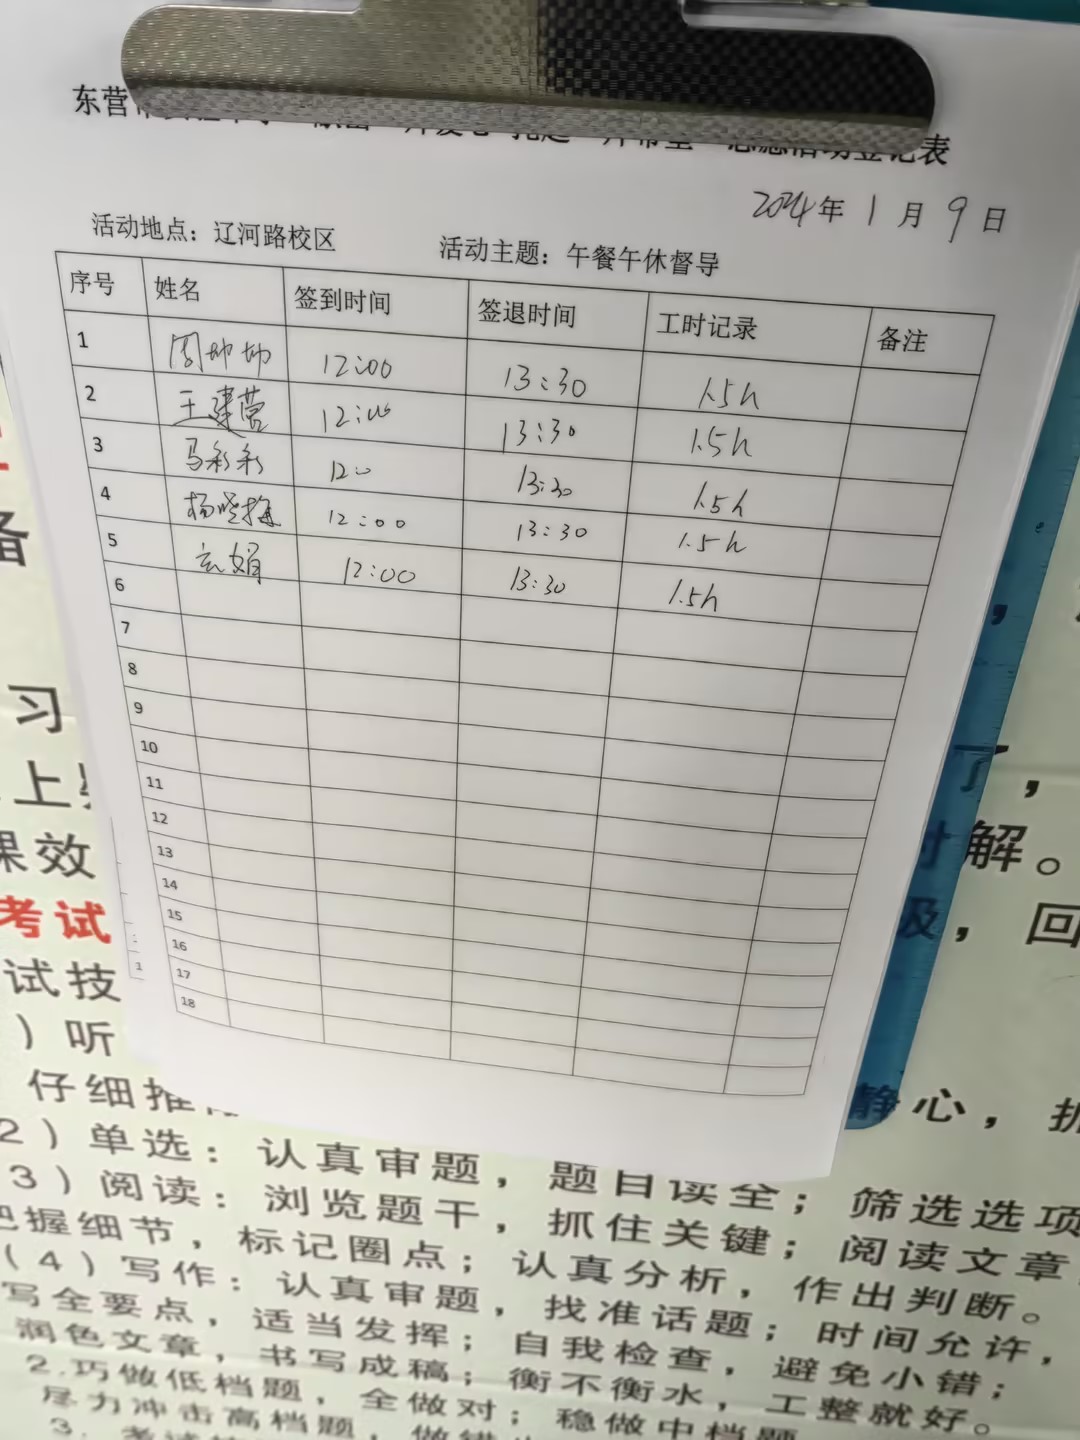 东营
登记表
2024年 1月 9日
活动地点：辽河路校区 活动主题：午餐午休督导
序号 姓名 签到时间 签退时间 工时记录 备注
1 周坤坤 12:00 13:30 1.5h
2 王建营 12:00 13:30 1.5h
3 马彩彩 120 13:30 1.5h
4 杨晓梅 12:00 13:30 1.5h
5 玄娟 12:00 13:30 1.5h
6
7
8
9
10
11
12
13
14
15
16
17
18
备
习 了，
上
课效 对解。
考试 级，回
试技
）听
仔细推 静心，抓
2）单选：认真审题，题目读全；筛选选项
3）阅读：浏览题干，抓住关键；阅读文章
把握细节，标记圈点；认真分析，作出判断。
（4）写作：认真审题，找准话题；时间允许，
写全要点，适当发挥；自我检查，避免小错；
润色文章，书写成稿；衡不衡水，工整就好。
2.巧做低档题，全做对；稳做中档题
尽力冲击高档题，做错
3.考试